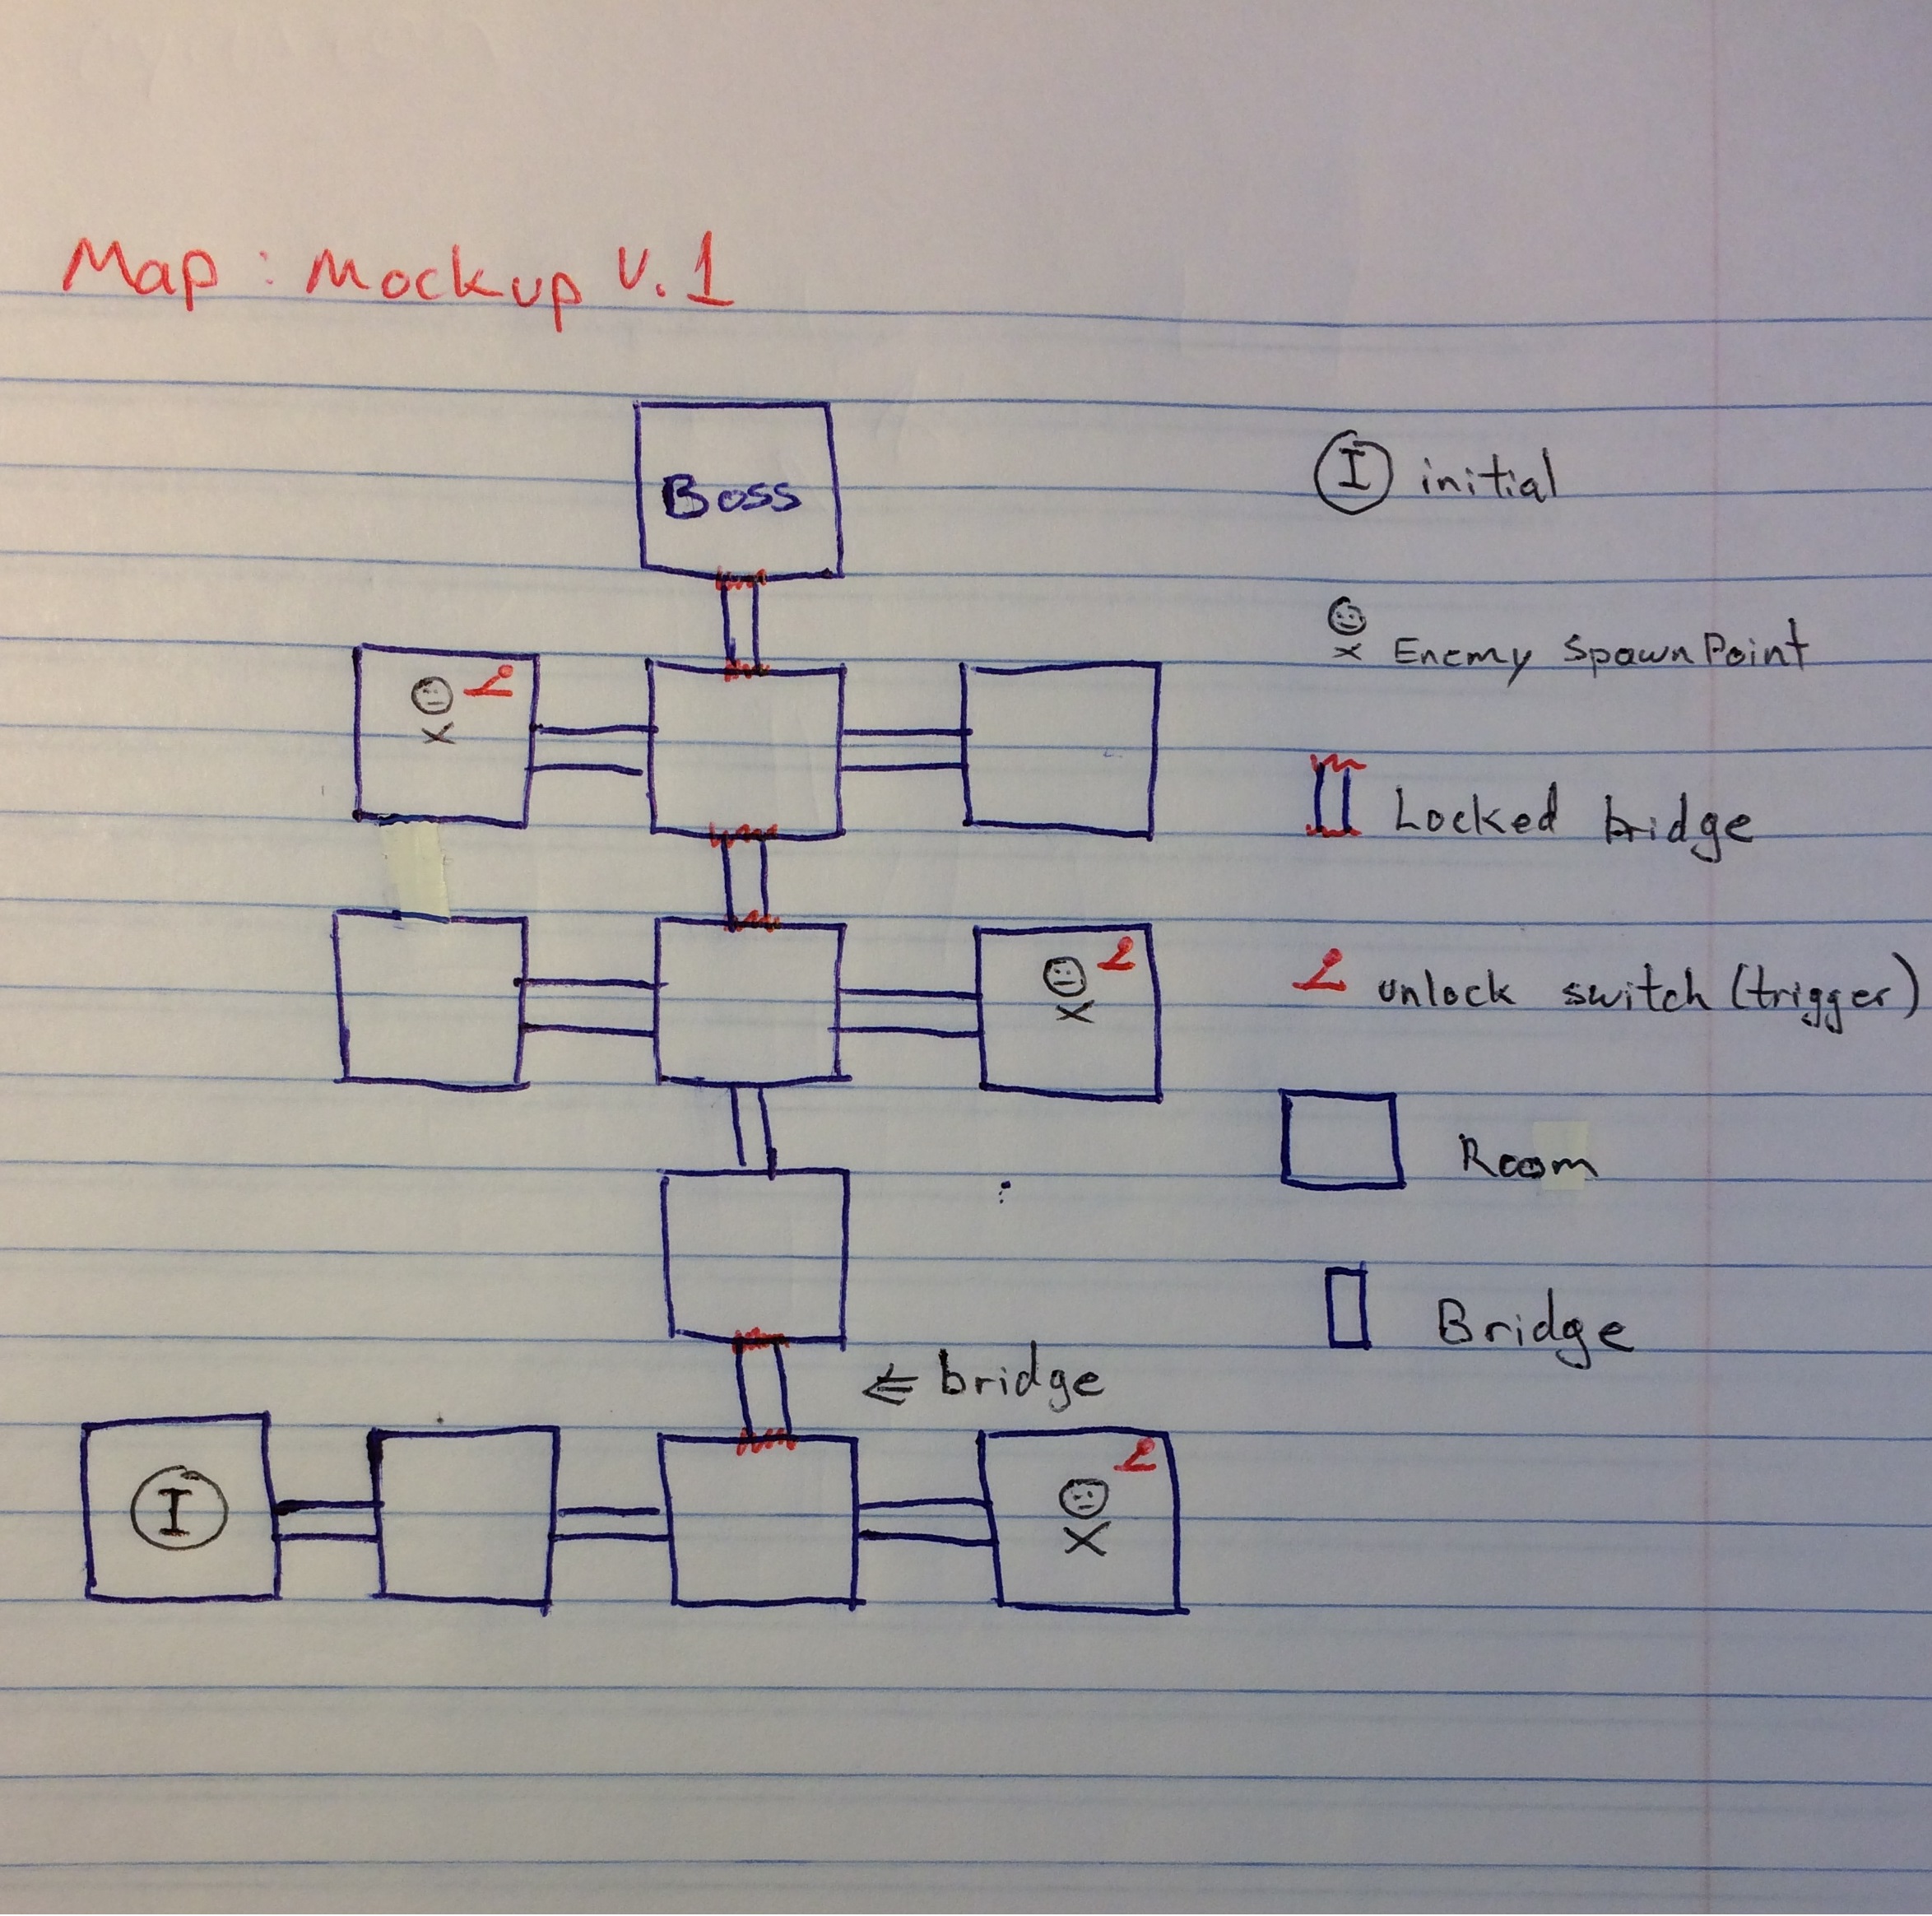 Map : Mockup V.1
Boss
I initial
x Enemy SpawnPoint
x
Locked bridge
unlock switch (trigger)
x
Room
⇐ bridge
Bridge
I
x